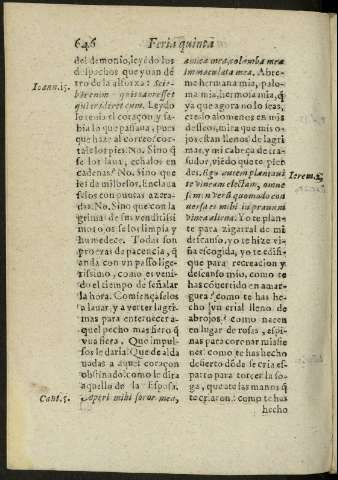 646 Feria quinta
del demonio, leyẽdo los
despachos que yuan dẽ
tro de la alforxa: Scie-
Ioann. 13.
bat enim quisnam esset
qui traderet eum. Leydo
los tenia el coraçon, y sa-
bia lo que passaua, pues
que haze al correo? cor-
tale los pies. No. Sino q̃
se los laua, echalos en
cadenas? No. Sino que
les da mil besos. Enclaua
selos con puntas azera-
das. No. Sino que con la
grimas de sus venditissi
mos ojos se los limpia y
humedece. Todas son
prueuas de paciencia, q̃
anda con vn passo lige-
rissimo, como es veni-
do el tiempo de señalar
la hora. Comiençaselos
a lauar, y a verter lagri-
mas para enternecer a-
quel pecho mas fiero q̃
vna fiera. Que impul-
sos le daria! Que de alda
uadas a aquel coraçon
obstinado! como le diria
aquello de la Esposa.
Cant. 5.
Aperi mihi soror mea,
amica mea, columba mea
immaculata mea. Abre-
me hermana mia, palo-
ma mia, hermosa mia, q̃
ya que agora no lo seas,
creslo alomenos en mis
desseos, mira que mis o-
jos estan llenos de lagri
mas, y mi cabeça de tra-
sudor, viẽdo que te pier
des. Ego autem plantaui
Ierem. 2.
te vineam electam, omne
semen verũ quomodo con
uersa es mihi in prauum
vinea aliena. Yo te plan-
te para zigarral de mi
descanso, yo te hize vi-
ña escogida, yo te edifi-
que para recreacion y
descanso mio, como te
has cõuertido en amar-
gura? como te has he-
cho yn erial lleno de
abrojos? como nacen
en lugar de rosas, espi-
nas para coronar mis sie
nes? como te has hecho
desierto dõde se cria es-
parto para torcer la so-
ga, que ate las manos q̃
te criaron? como te has
hecho